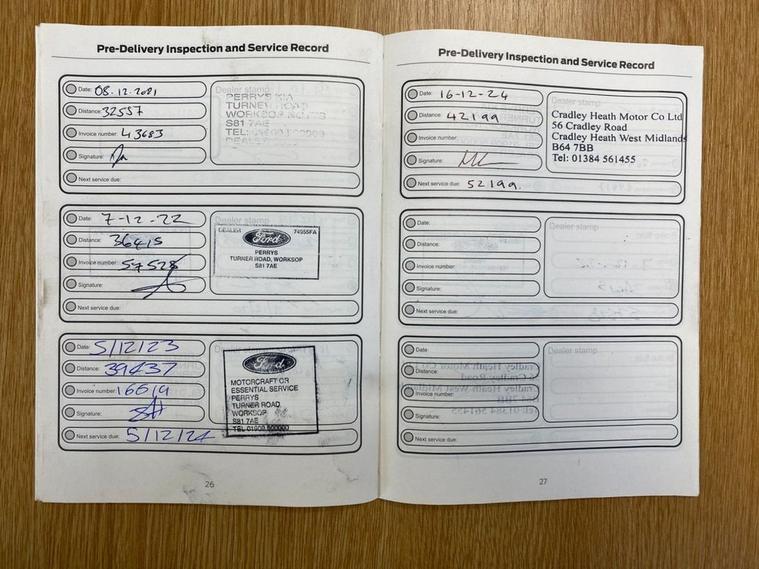 Pre-Delivery Inspection and Service Record
Date: 08.12.2021
Distance: 32557
Invoice number: 43683
Signature:
Next service due:
Dealer stamp
PERRYS KIA
TURNER ROAD
WORKSOP NOTTS
S81 7AE
TEL:
Date: 7-12-22
Distance: 36415
Invoice number: 57528
Signature:
Next service due:
Dealer stamp
DEALER 74955FA
Ford
PERRYS
TURNER ROAD, WORKSOP
S81 7AE
Date: 5/12/23
Distance: 39437
Invoice number:
Signature:
Next service due: 5/12/24
Ford
MOTORCRAFT OR
ESSENTIAL SERVICE
PERRYS
TURNER ROAD
WORKSOP
S81 7AE
TEL 01909 500000
26
Pre-Delivery Inspection and Service Record
Date: 16-12-24
Distance: 42199
Invoice number:
Signature:
Next service due: 52199.
Cradley Heath Motor Co Ltd
56 Cradley Road
Cradley Heath West Midlands
B64 7BB
Tel: 01384 561455
Date:
Distance:
Invoice number:
Signature:
Next service due:
Dealer stamp
Date:
Distance:
Invoice number:
Signature:
Next service due:
Dealer stamp
27